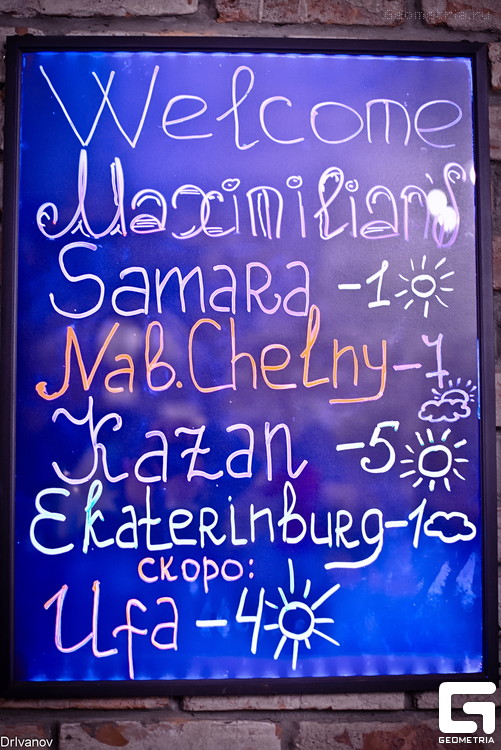 Geometria.ru
Welcome
Maximilians
Samara -1
Nab.Chelny-7
Kazan -5
Ekaterinburg-1
скоро:
Ufa -4
DrIvanov
GEOMETRIA